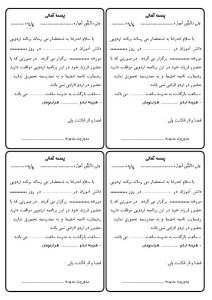 بسمه تعالی
ولی دانش آموز: ................ پایه: ........
با سلام احتراما به استحضار می رساند برنامه اردویی
دانش آموزان در ................ در روز ................
مورخه ................ برگزار می گردد . در صورتی که با
حضور فرزند خود در این برنامه اردویی موافقت دارید
رضایت نامه امضا و به مدرسه تحویل نمایید .
حضور در اردو الزامی نمی باشد .
ساعت بازگشت به مدرسه ساعت ........ می باشد .
هزینه اردو ........ هزارتومان
امضا و اثر انگشت ولی :
مدیریت مدرسه ........
بسمه تعالی
ولی دانش آموز: ................ پایه: ........
با سلام احتراما به استحضار می رساند برنامه اردویی
دانش آموزان در ................ در روز ................
مورخه ................ برگزار می گردد . در صورتی که با
حضور فرزند خود در این برنامه اردویی موافقت دارید
رضایت نامه امضا و به مدرسه تحویل نمایید .
حضور در اردو الزامی نمی باشد .
ساعت بازگشت به مدرسه ساعت ........ می باشد .
هزینه اردو ........ هزارتومان
امضا و اثر انگشت ولی :
مدیریت مدرسه ........
بسمه تعالی
ولی دانش آموز: ................ پایه: ........
با سلام احتراما به استحضار می رساند برنامه اردویی
دانش آموزان در ................ در روز ................
مورخه ................ برگزار می گردد . در صورتی که با
حضور فرزند خود در این برنامه اردویی موافقت دارید
رضایت نامه امضا و به مدرسه تحویل نمایید .
حضور در اردو الزامی نمی باشد .
ساعت بازگشت به مدرسه ساعت ........ می باشد .
هزینه اردو ........ هزارتومان
امضا و اثر انگشت ولی :
مدیریت مدرسه ........
بسمه تعالی
ولی دانش آموز: ................ پایه: ........
با سلام احتراما به استحضار می رساند برنامه اردویی
دانش آموزان در ................ در روز ................
مورخه ................ برگزار می گردد . در صورتی که با
حضور فرزند خود در این برنامه اردویی موافقت دارید
رضایت نامه امضا و به مدرسه تحویل نمایید .
حضور در اردو الزامی نمی باشد .
ساعت بازگشت به مدرسه ساعت ........ می باشد .
هزینه اردو ........ هزارتومان
امضا و اثر انگشت ولی :
مدیریت مدرسه ........